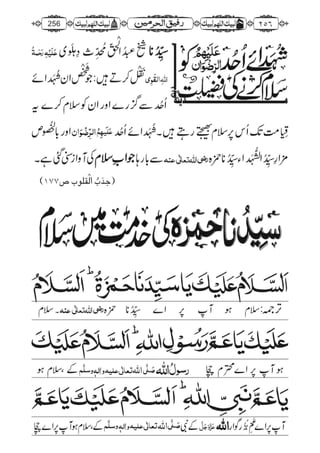 256 لبیک اللھم لبیک رفیق الحرمین لبیک اللھم لبیک ٢٥٦
شُہَدائے اُحُد عَلَیْہِمُ الرِّضْوَان کو
سلام کرنے کی فضیلت
سیِّدُنا شیخ عبدُالحق مُحَدِّث دِہلوی عَلَیْہِ رَحْمَۃُ
اللہِ الْقَوِی نَقْل کرتے ہیں: جو شخص ان شُہَدائے
اُحُد سے گزرے اور ان کو سلام کرے یہ
قِیامت تک اُس پر سلام بھیجتے رہتے ہیں۔ شُہَدائے اُحُد عَلَیْہِمُ الرِّضْوَان اور بالخصوص
مزارِ سیِّدُ الشُّہَداء سیِّدُنا حمزہ رضی اللہ تعالٰی عنہ سے بارہا جوابِ سلام کی آواز سنی گئی ہے۔
(جذبُ القلوب ص ١٧٧)
سیِّدُنا حمزہ کی خدمت میں سلام
اَلسَّلَامُ عَلَيْكَ يَا سَيِّدَنَا حَمْزَةُ ؕ اَلسَّلَامُ
ترجمہ: سلام ہو آپ پر اے سیِّدُنا حمزہ رضی اللہ تعالٰی عنہ۔ سلام
عَلَيْكَ يَا عَمَّ رَسُوْلِ اللهِ ؕ اَلسَّلَامُ عَلَيْكَ
ہو آپ پر اے محترم چچا رسولُ اللہ صلَّی اللہ تعالٰی علیہ والہٖ وسلَّم کے، سلام ہو
يَا عَمَّ نَبِيِّ اللهِ ؕ اَلسَّلَامُ عَلَيْكَ يَا عَمَّ
آپ پر اے عمِّ بزرگوار اللہ عَزَّوَجَلَّ کے نبی صلَّی اللہ تعالٰی علیہ والہٖ وسلَّم کے، سلام ہو آپ پر اے چچا